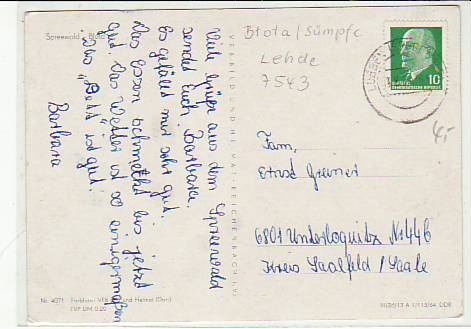 Spreewald · Blota
Viele Grüße aus dem Spreewald
sendet Euch Barbara.
Es gefällt mir sehr gut.
Das Essen schmeckt bis jetzt
gut. Das Wetter ist so einigermaßen
Das „Bett" ist gut.
Barbara
VERBILD UND HEIMAT REICHENBACH i. V.
Blota/Sümpfe
Lehde
7543
LÜBBEN
10
DEUTSCHE DEMOKRATISCHE REPUBLIK
4,-
Fam.
Ernst Greiner
6801 Unterloquitz Nr. 446
Kreis Saalfeld/Saale
Nr. 4071 Farbfoto: VEB Bild und Heimat (Dorn)
EVP DM 0,20
A 1/113/64 DDR